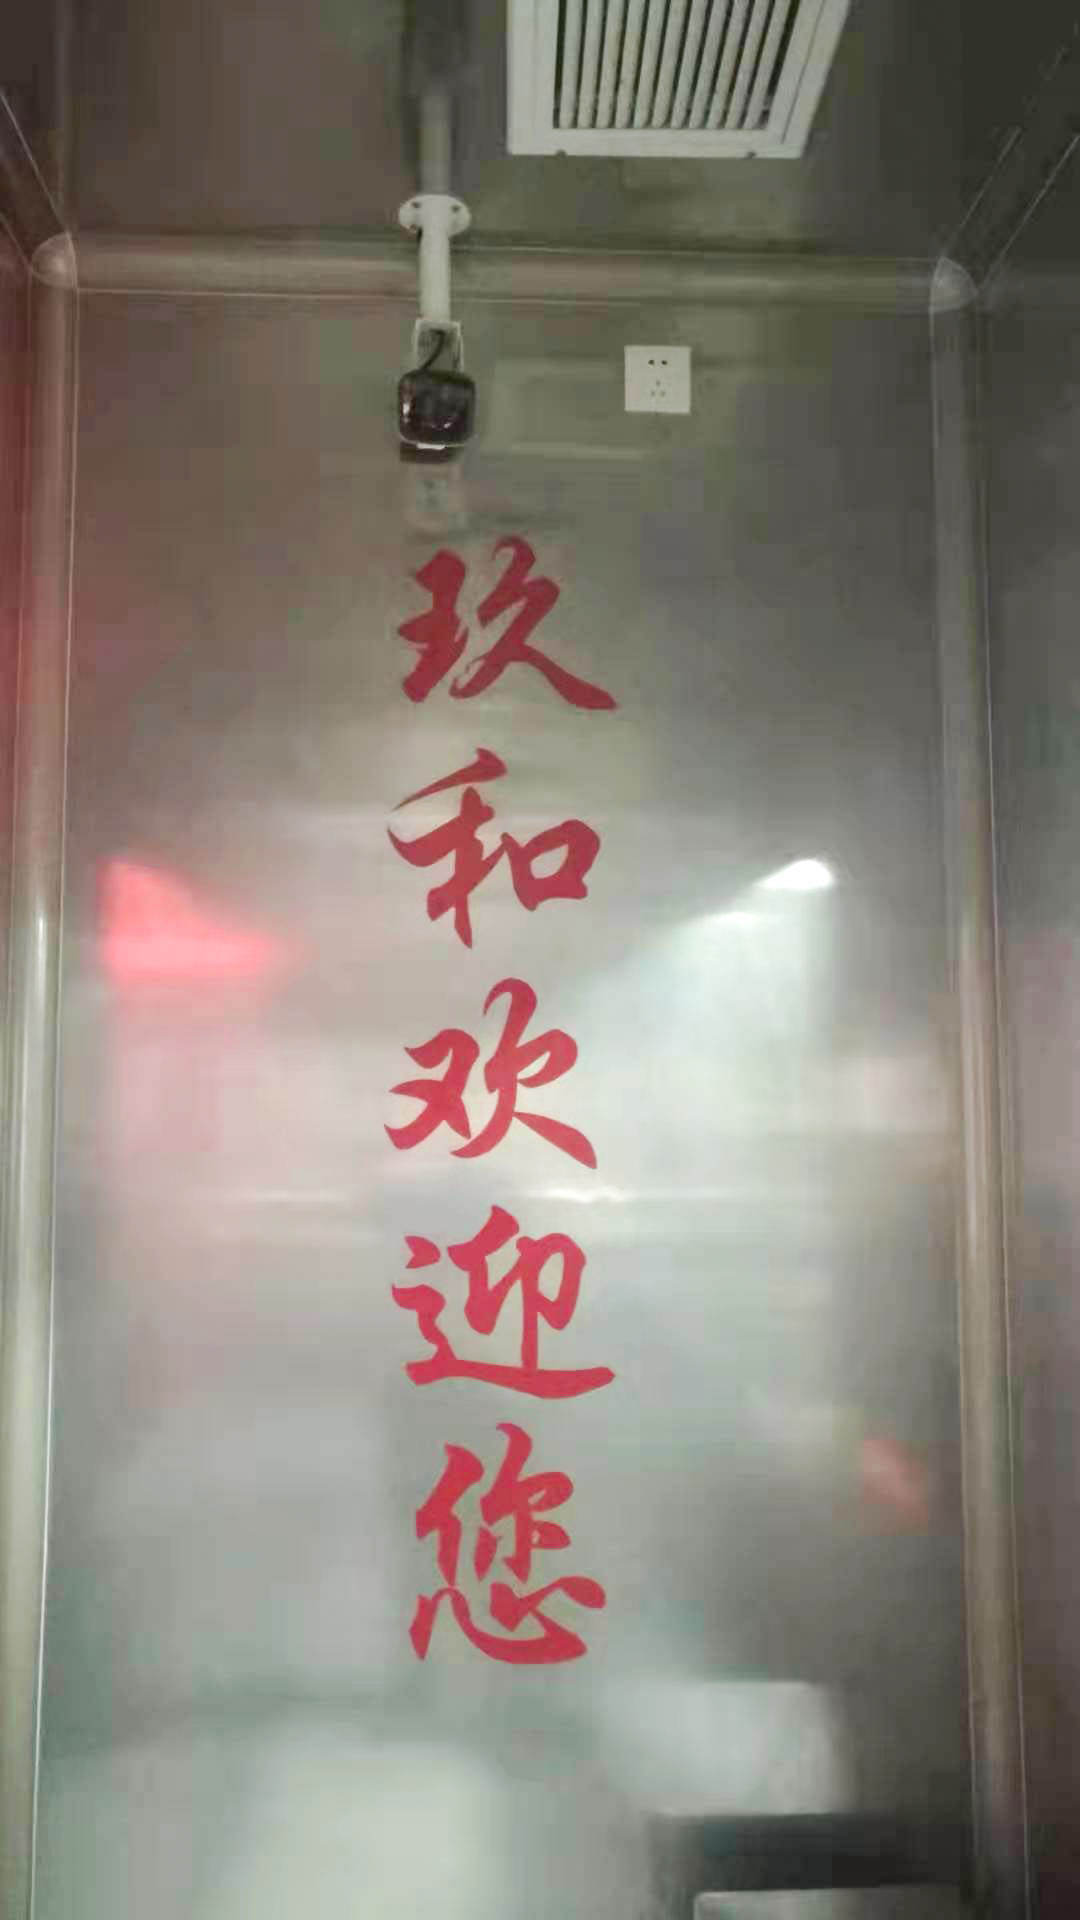 玖和欢迎您